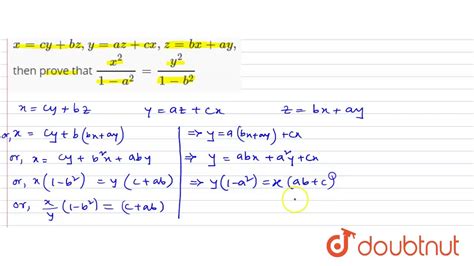 x = cy + bz, y = az + cx, z = bx + ay,
then prove that x²/(1 − a²) = y²/(1 − b²)
x = cy + bz y = az + cx z = bx + ay
or, x = cy + b(bx + ay)
or, x = cy + b²x + aby
or, x(1 - b²) = y(c + ab)
or, x/y (1 - b²) = (c + ab)
⇒ y = a(bx + ay) + cx
⇒ y = abx + a²y + cx
⇒ y(1 - a²) = x(ab + c)
doubtnut